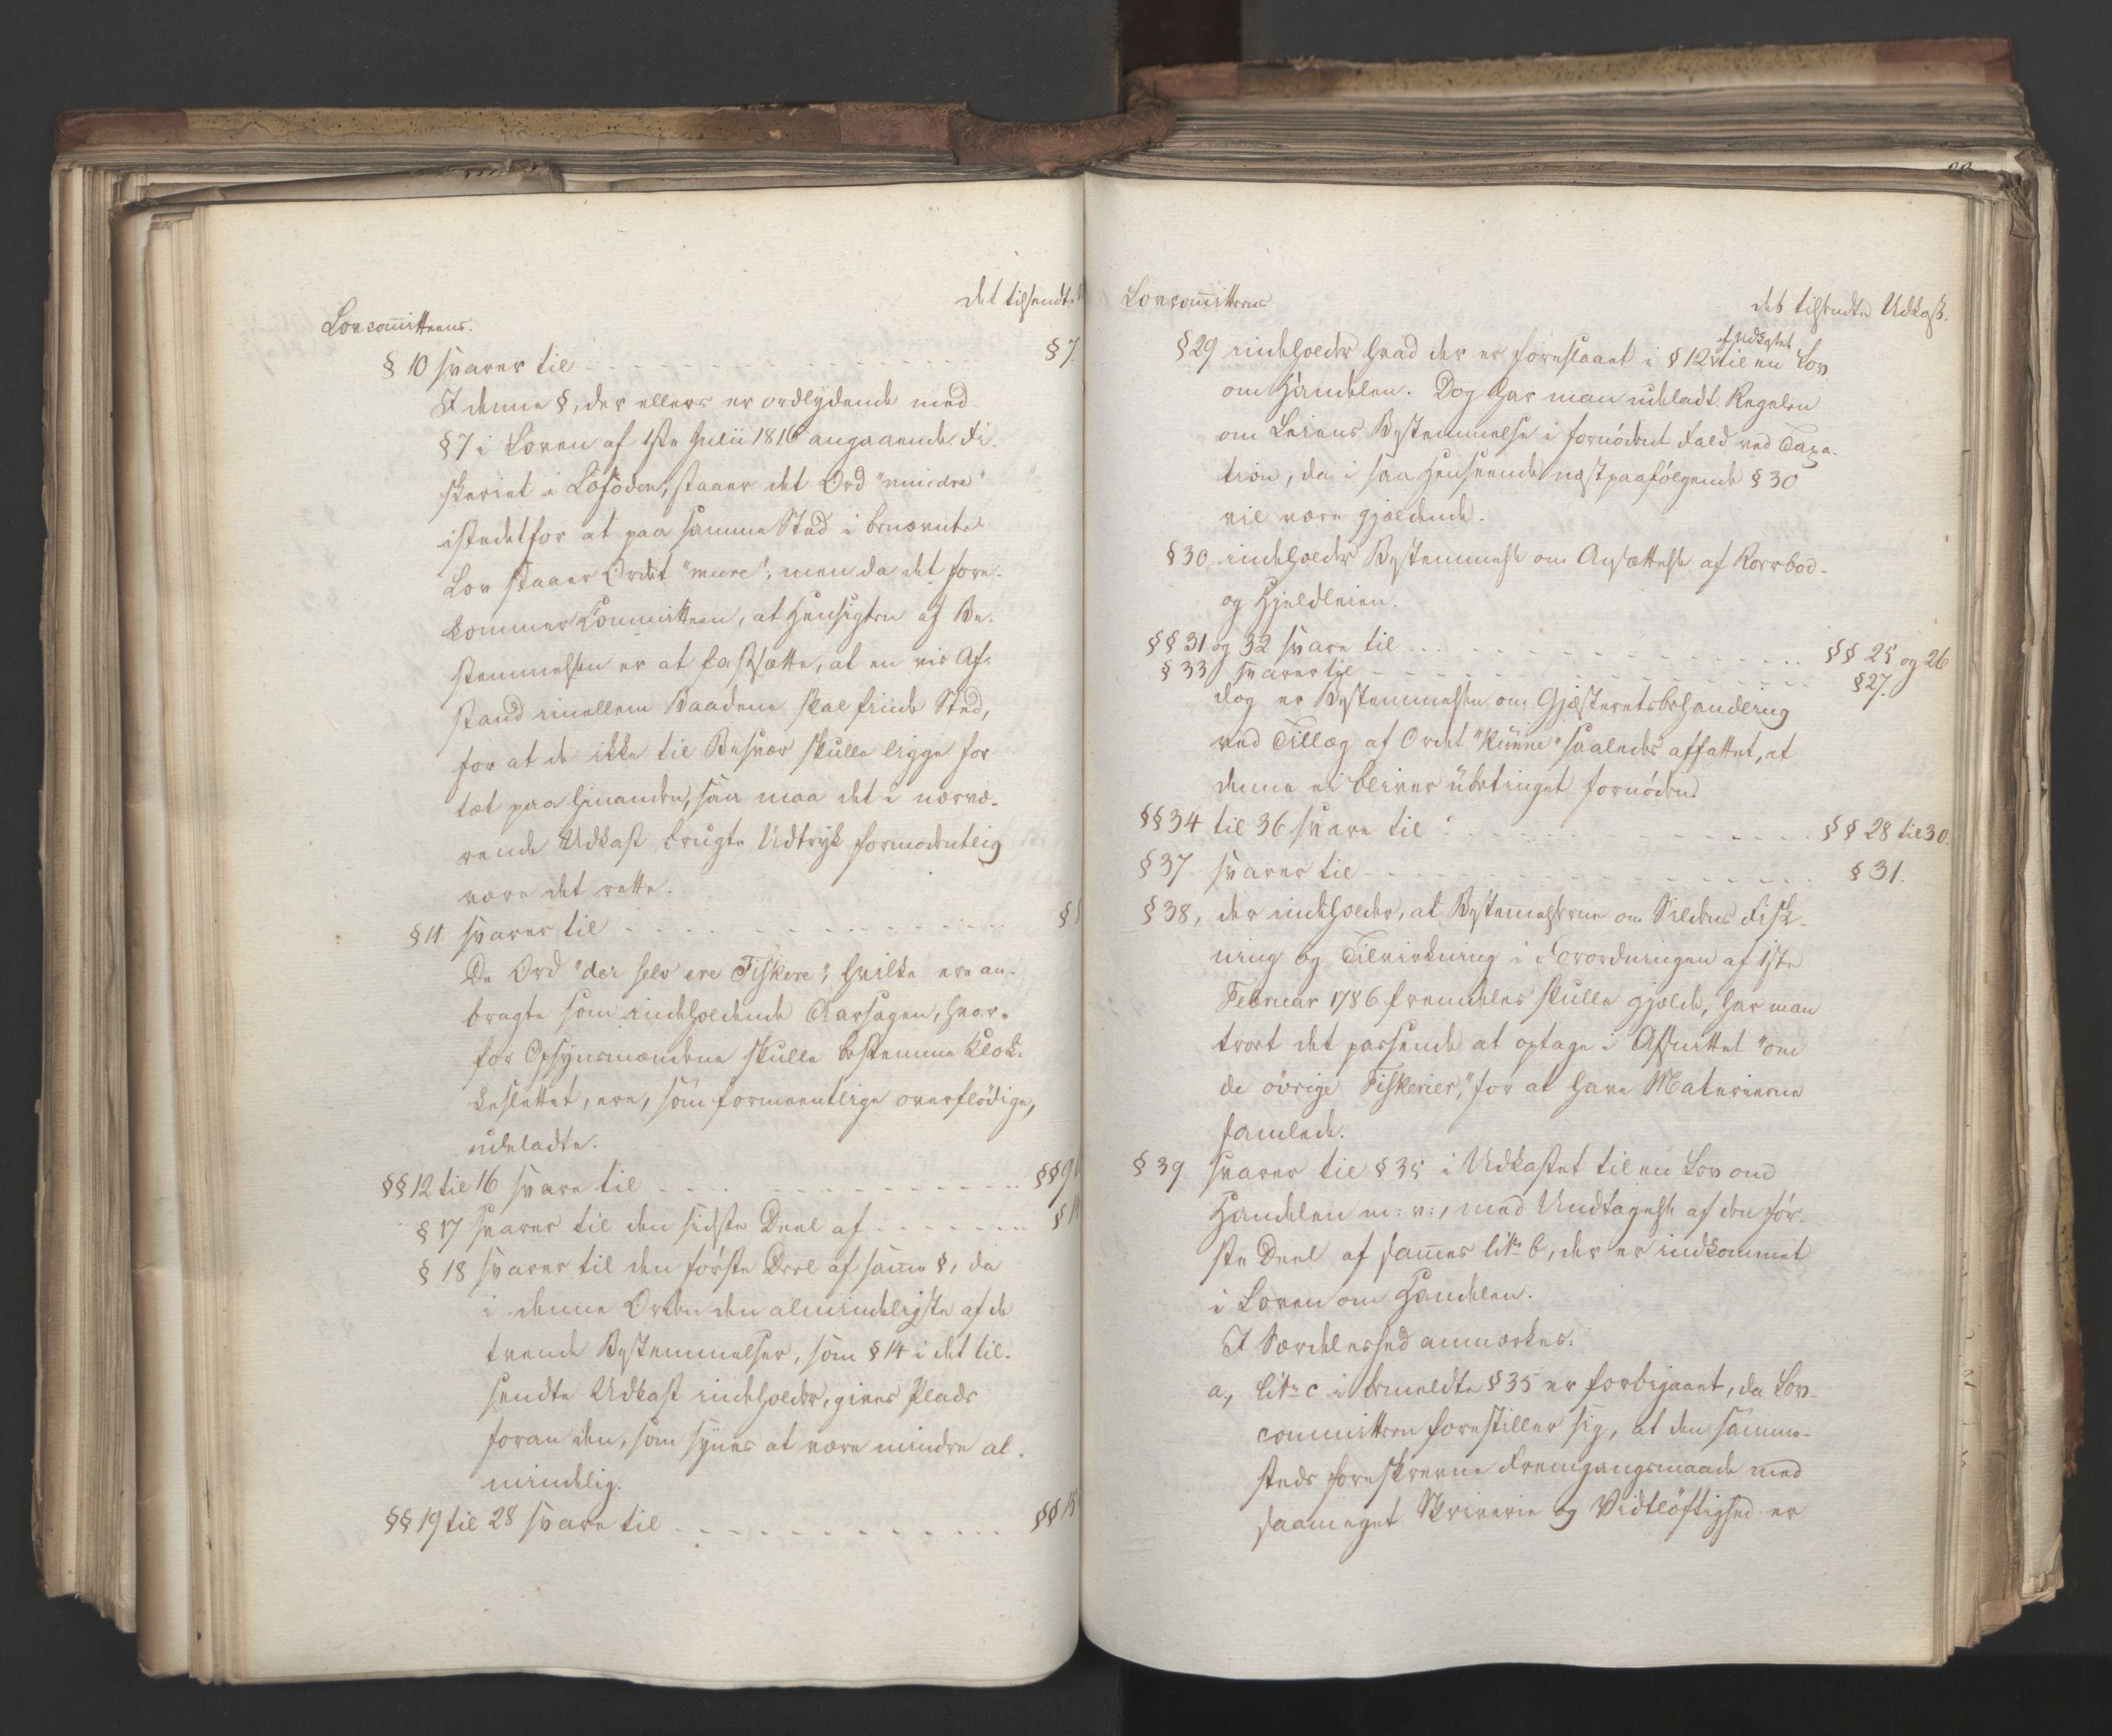 det tilsendte
Lovcom̅itteens.
§ 10 svarer til - - - - - - - - - - § 7
I denne §, der ellers er ordlydende med
§ 7 i Loven af 1ste Julii 1816 angaaende Fi-
skeriet i Lofoden, staaer det Ord "mindre"
istedetfor at paa samme Sted i benævnte
Lov staaer Ordet "meere"; men da det fore-
kommer Committeen, at Hensigten af Be-
stemmelsen er at fastsætte, at en vis Af-
stand imellem Baadene skal finde Sted,
for at de ikke til Besvær skulle ligge for
tæt paa hinanden, saa maa det i nærvæ-
rende Udkast brugte Udtryk formodentlig
være det rette.
§ 11. svarer til - - - - - - - - - - §
De Ord "der selv ere Fiskere", hvilke ere an-
bragte som indeholdende Aarsagen, hvor-
for Opsynsmændene skulle bestemme Klok-
keslettet, ere, som formeentlige overflödige,
udeladte.
§§ 12 til 16 svare til - - - - - - - - - - §§ 9
§ 17 svarer til den sidste Deel af - - - - - - - §
§ 18 svarer til den förste Deel af sam̅e §, da
i denne Orden den almindeligste af de
tvende Bestemmelser, som § 14 i det til-
sendte Udkast indeholder, gives Plads
foran den, som synes at være mindre al-
mindelig.
§§ 19 til 28 svare til - - - - - - - - - - §§
Lovcom̅itteens
det tilsendte Udkast.
§ 29 indeholder hvad der er foreslaaet i § 12 af Udkastet til en Lov
om Handelen. Dog har man udeladt Regelen
om Leiens Bestemmelse i fornödent Fald ved Taxa-
tion, da i saa Henseende næstpaafölgende § 30
vil være gjældende.
§ 30 indeholder Bestemmelse om Ansættelse af Rorbod-
og Hjeldleien.
§§ 31 og 32 svare til - - - - - - - - - - §§ 25 og 26
§ 33 svarer til - - - - - - - - - - § 27.
dog er Bestemmelsen om Gjæsteretsbehandling
ved Tillæg af Ordet "kunne" saaledes affattet, at
denne ei bliver übetinget fornöden.
§§ 34 til 36 svare til - - - - - - - - - - §§ 28 til 30.
§ 37. svarer til - - - - - - - - - - § 31.
§ 38, der indeholder, at Bestem̅elserne om Sildens Fisk-
ning og Tilvirkning i Forordningen af 1ste
Februar 1786 fremdeles skulle gjælde, har man
troet det passende at optage i Afsnittet "om
de övrige Fiskerier," for at have Materierne
samlede.
§ 39 svarer til § 35 i Udkastet til en Lov om
Handelen m: v:, med Undtagelse af den för-
ste Deel af sam̅es litr b, der er indkommet
i Loven om Handelen.
I Særdeleshed anmærkes:
a, litr c i bemeldte § 35 er forbigaaet, da Lov-
committeen forestiller sig, at den samme-
steds foreskrevne Fremgangsmaade med
saameget Skriverie og Vidtlöftighed er